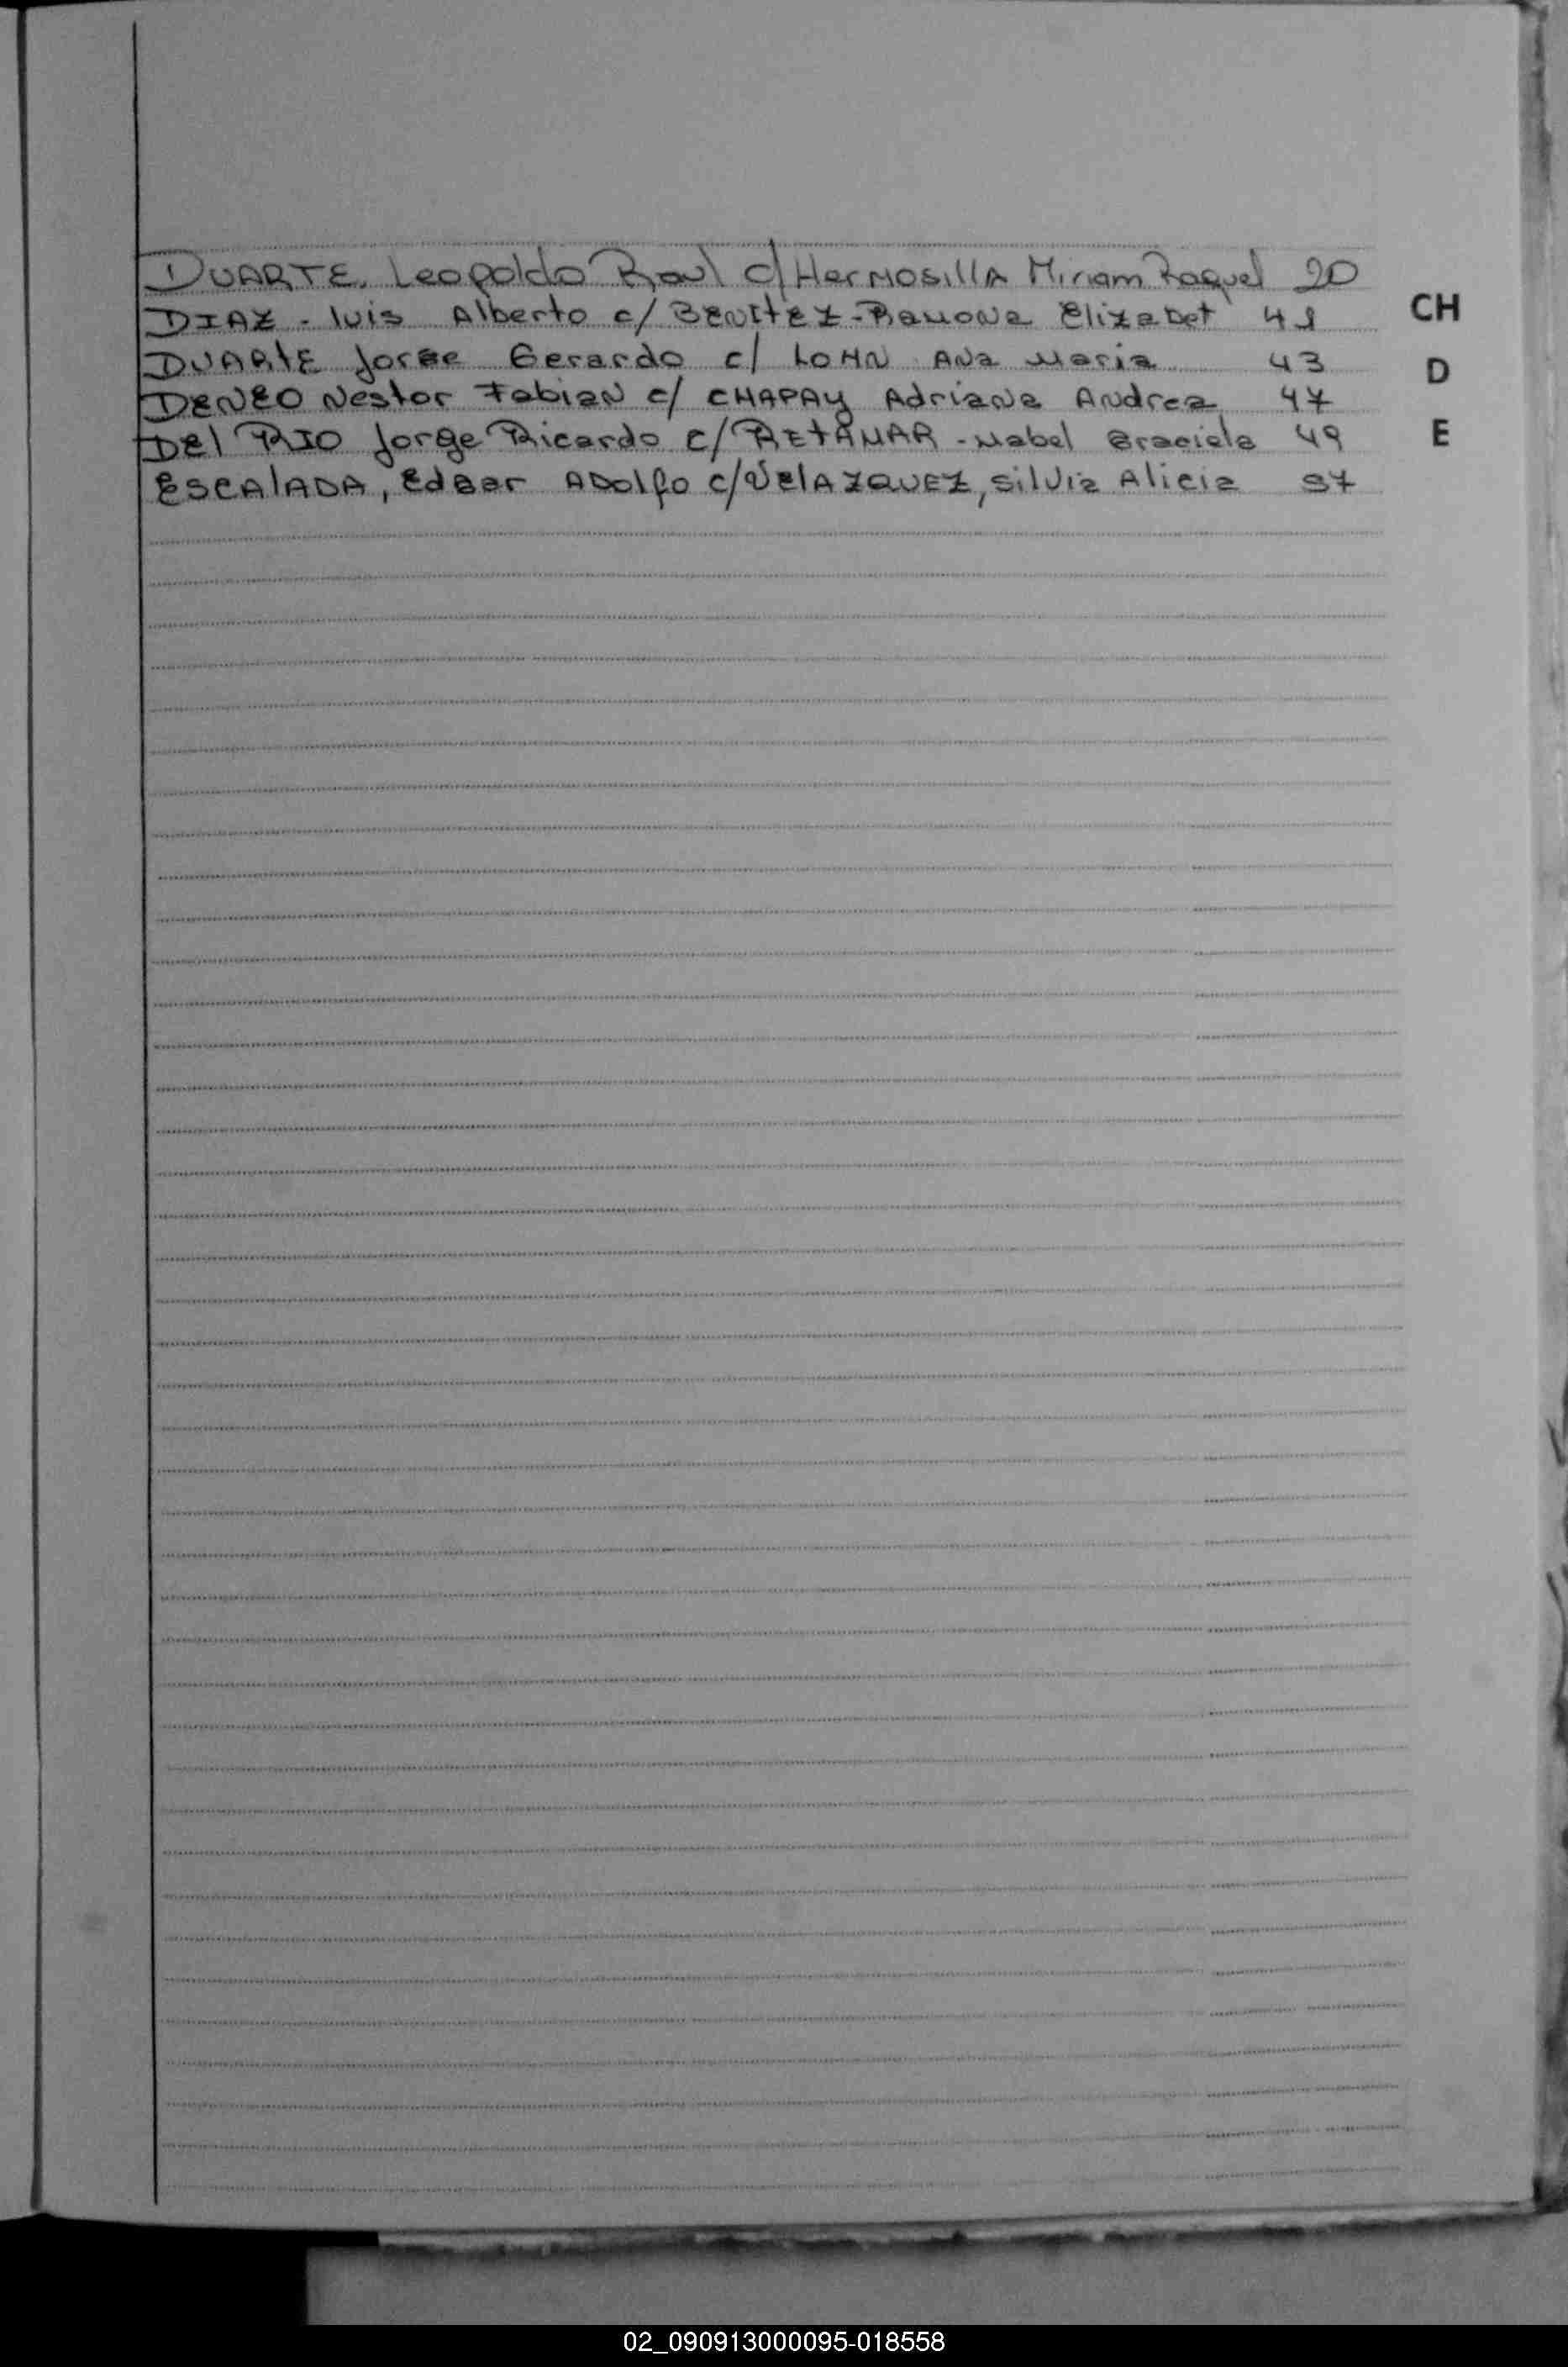 DUARTE. Leopoldo Raul c/ HerMosillA Miriam Raquel 20
DIAZ - luis Alberto c/ BENITEZ - Ramona Elizabet 41
CH
DUARTE Jorge Gerardo c/ LOHN ANa Maria 43
D
DENEO Nestor Fabian c/ CHAPAY Adriana Andrea 47
Del RIO Jorge Ricardo c/ RETAMAR - Mabel Graciela 49
E
EscAlADA, Edgar ADolfo c/ VelAZQUEZ, Silvia Alicia 97
02_090913000095-018558